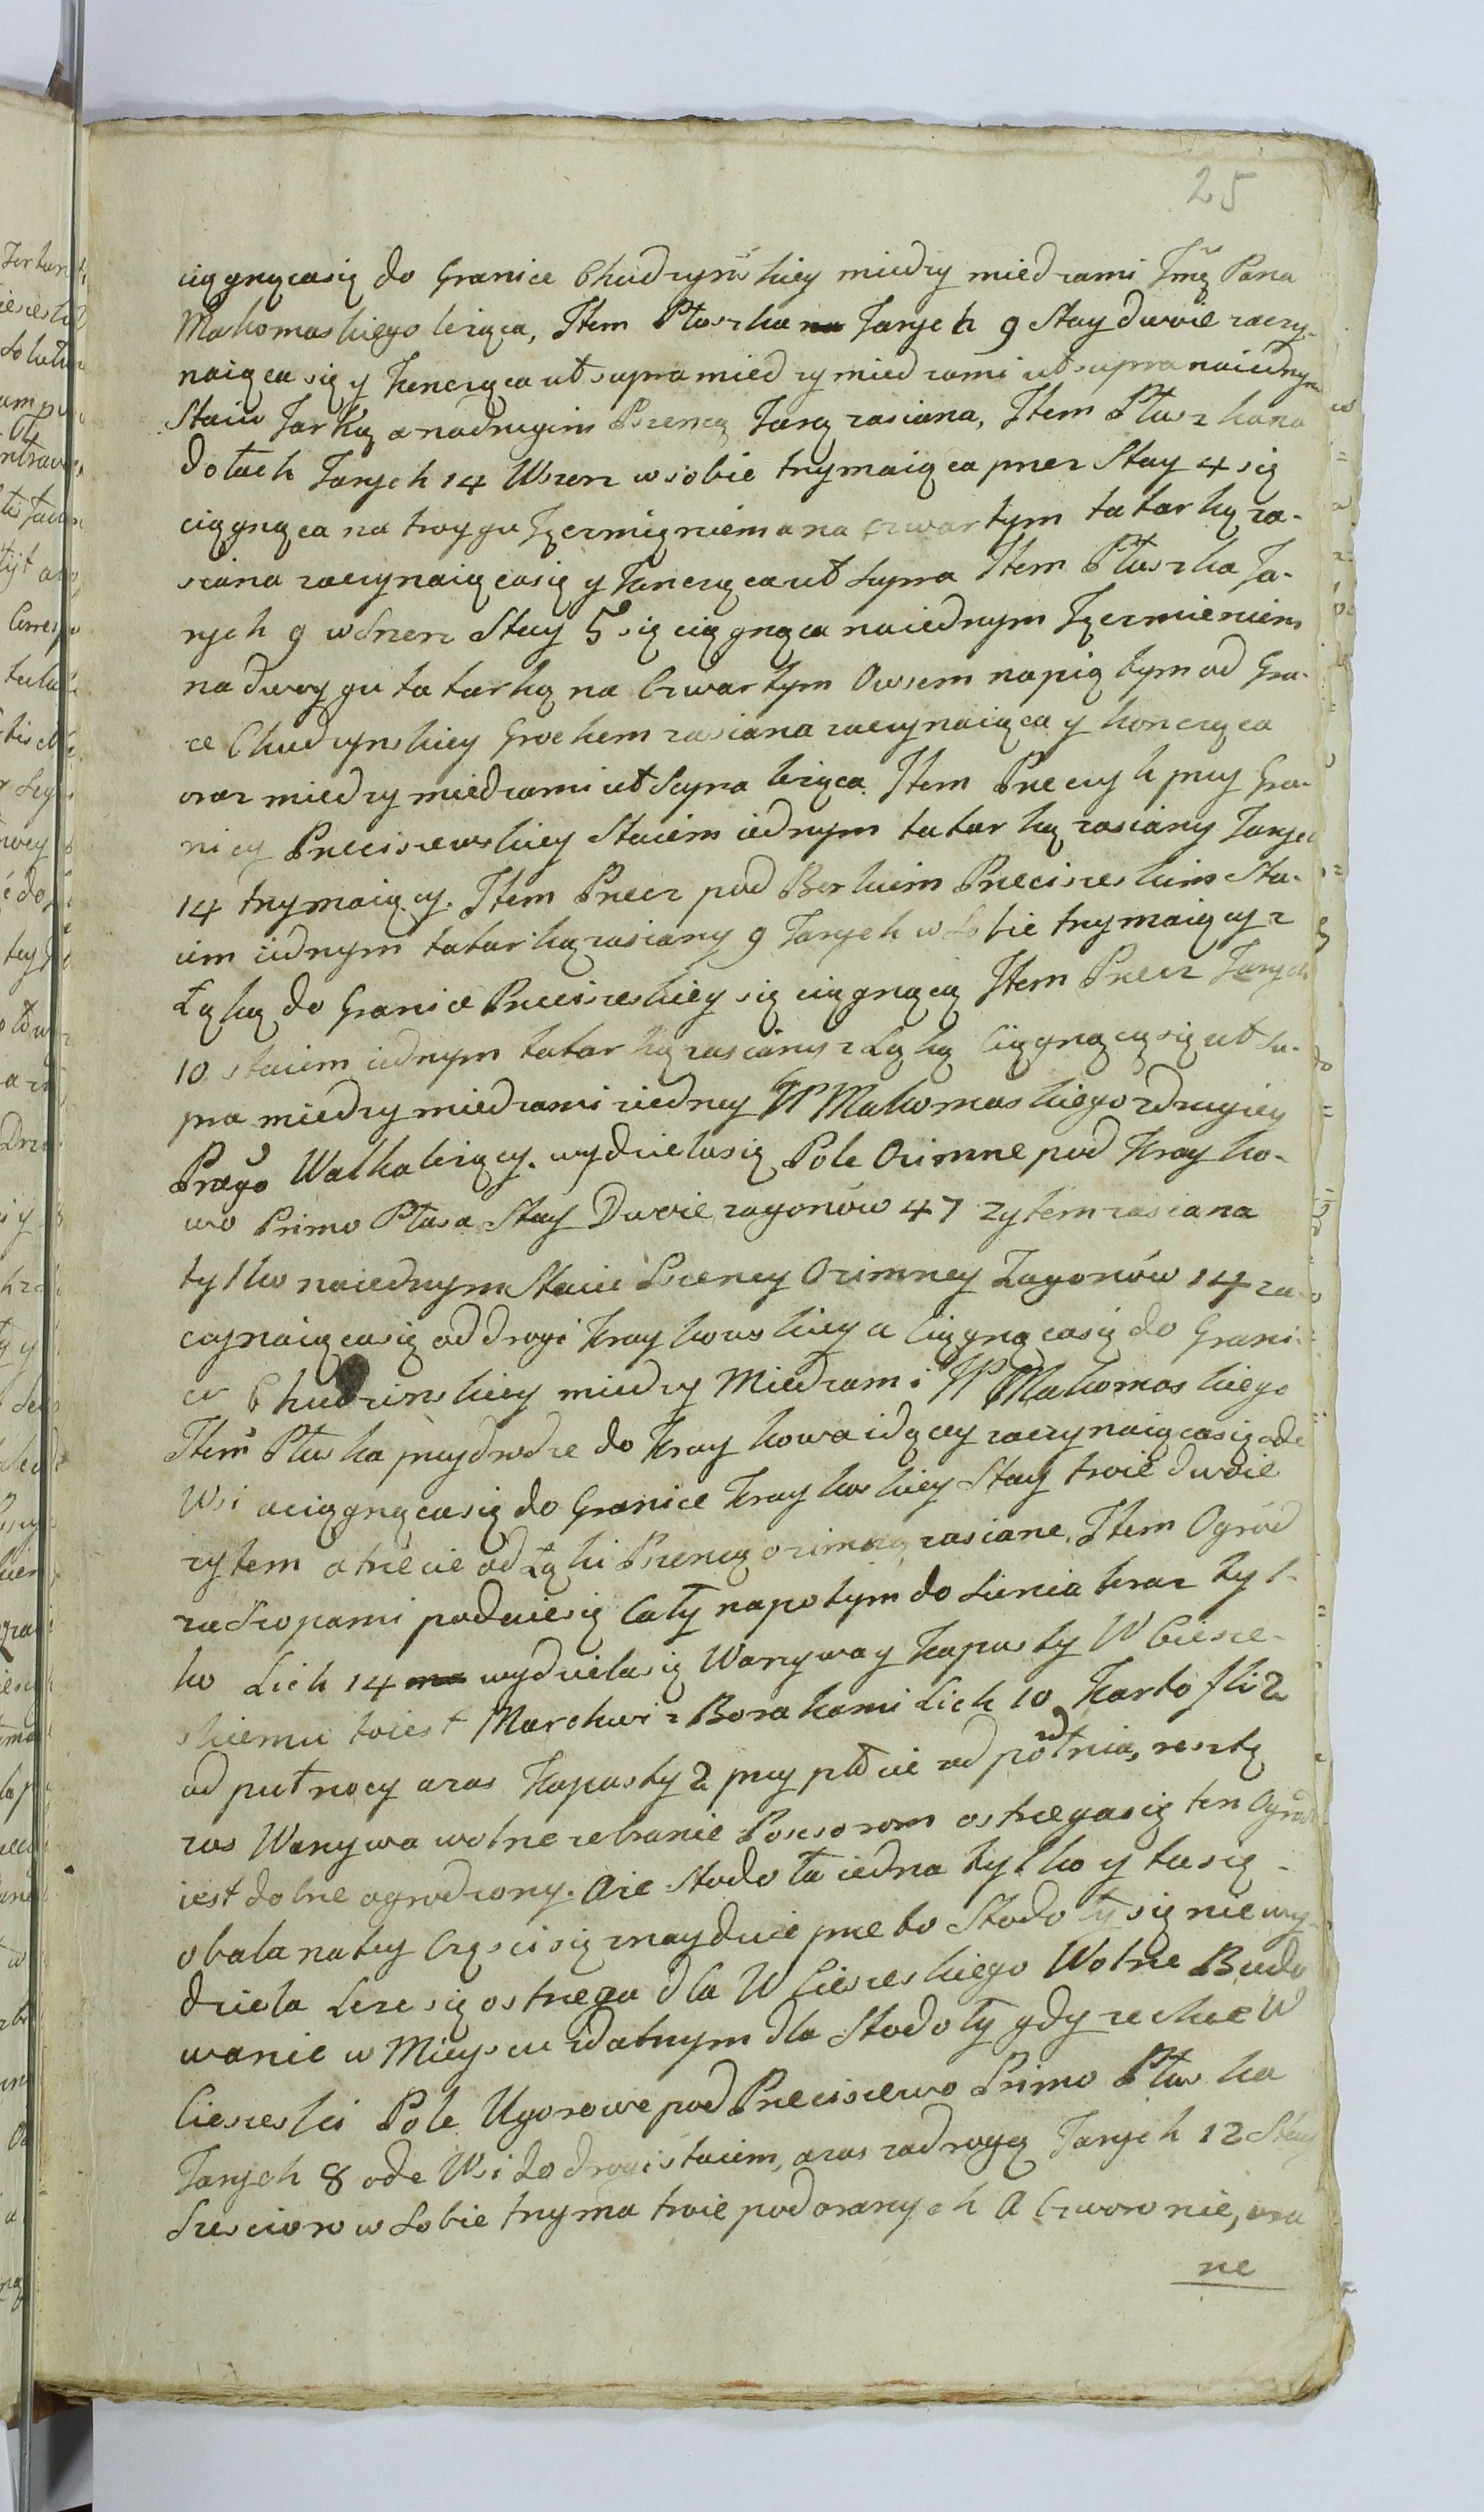 25
ciągnącasię do Granice Chudzyńskiey miedzy miedzami Jmę Pana
Makomaskiego leżąca, Item Płoszka Jarych 9 Stay dwoie zaczy-
naiącasię y konczącaut supra miedzy miedzami ut supra naiednym
Staiu Jarką a nadrugim Przenią Jarą zasiana, Item Płuszkana
dołach Jarych 14 Wszerz wsobie trzymaiąca przez Stay 4 się
ciągnąca na troygu Jęczmięniem a na czwartym tatarką za-
siana zaczynaiącasię y kończącaut Supra Item Płuszka Ja-
rych 9 wSzerz Stay 5 się ciągnąca naiednym Jęczmieniem
nadwoygu tatarką na Czwartym Owsem napiątym od Gra-
ce Chudzynskiey Grochem zasiana zaczynaiąca y koncząca
oraz miedzy miedzami ut Supra leżąca Item Przeczyk przy Gra-
nicy Przeciszewskiey Staiem iednym tatarką zasiany Jarych
14 trzymaiący. Item Przecz pod Borkiem Przeciszeskim Sta-
iem iednym tatarką zasiany 9 Jarych w Sobie trzymaiący z
Łąką do Granice Przeciszeskiey się ciągnącą Item Przecz Jarych
10 staiem iednym tatarką zasiany z Łąką Ciągnącysię ut Su-
pra miedzy miedzami ziedney W Makomaskiego zdrugiey
Walka leżący. wydzielasię Pole Ozimne pod Krayko-
wo Primo Płosa Stay Dwoie zagonów 47 Zytem zasiana
tylko naiednym Staiu Pszeney Ozimney Zagonów 14 za-
czynaiącasię od drogi Kraykowskiey a Ciągnącasię do Grani-
ce Chudzinskiey miedzy Miedzami W Makomaskiego
Item Płuska przydrodze do Kraykowa idącey zaczynaiącasię ode
Wsi aciągnącasię do Granice Kraykoskiey Stay troie dwoie
zytem atrzecie od Łąki Przenią ozimną zasiane. Item Ogród
zaSzopami podzielsię Cały napotym do Sienia teraz tyl-
ko Lich 14 wydzielasię Warzywa y Kapusty W Ciesze-
skiemu toiest Marchwi z Borakami Lich 10 Kartofli 2
od pułnocy azas Kapusty 2 przy płocie od połdnia, resztę
zas Warzywa wolne zebranie Posesorom ostrzegasię ten Ogród
iest dobrze ogrodzony. Aże Stodoła iedna tylko y tasię
obala natey Częscisię znayduie przeto Stodoły się niewy-
dziela Lecz się ostrzega dla W Cieszeskiego Wolne Budo
wanie w Mieyscu zdatnym dla Stodoły gdy zechce W
Cieszeski Pole Ugorowe pod Przeciszewo Primo Płuska
Jarych 8 ode Wsi do drogi staiem, azas zadrogą Jarych 12 Stay
Szescioro w Sobie trzyma troie podoranych A Czworo nie, ora
ne